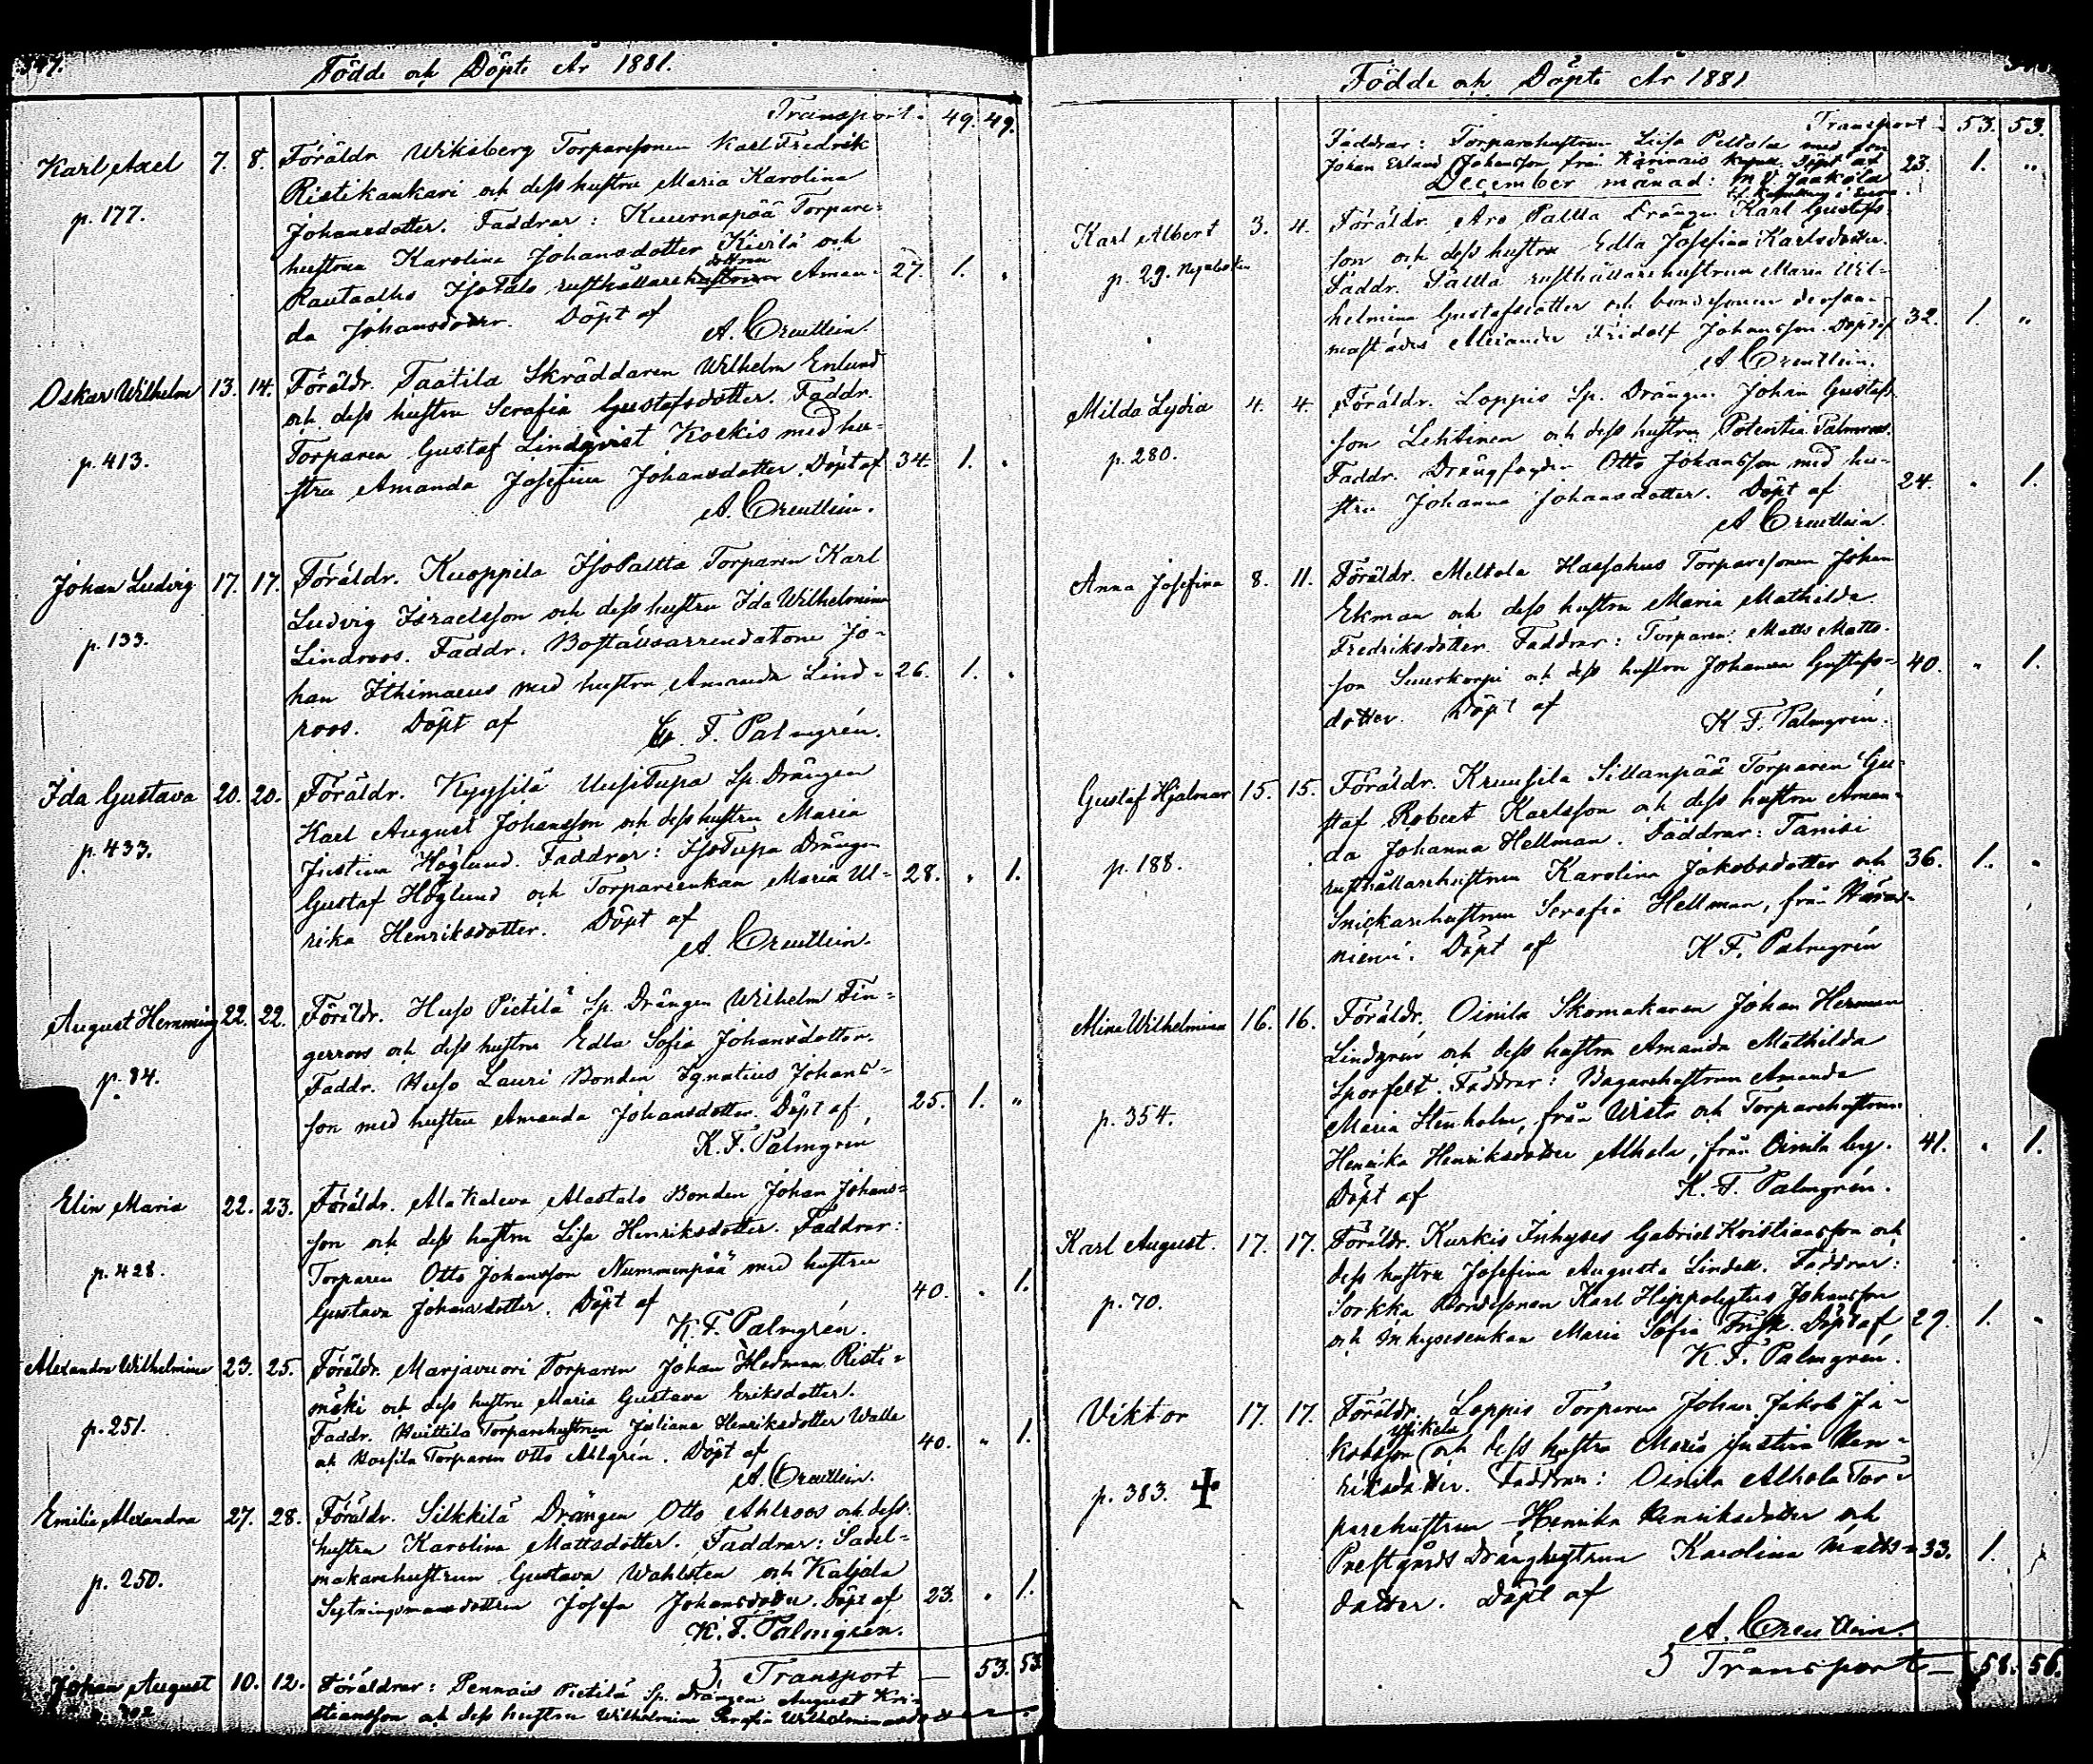 347.
Födde och Döpte År 1881.
Transport. 49. 49.
Karl Axel 7. 8. Föräldr Wiksberg Torparesonen Karl Fredrik
p. 177. Ristikankari och dess hustru Maria Karolina
Johansdotter. Faddrar: Kuurnapää Torpare-
hustrun Karolina Johansdotter Kierilä och
Rautaalho IsoTalo rusthållarehustrun dottren Aman- 27. 1. "
da Johansdotter. Döpt af
A. Creutlein.
Oskar Wilhelm 13. 14. Föräldr. Taatila Skräddaren Wilhelm Enlund
och dess hustru Serafia Gustafsdotter. Faddr.
p. 413. Torparen Gustaf Lindqvist Koskis med hu-
stru Amanda Josefina Johansdotter. Döpt af 34. 1. "
A. Creutlein.
Johan Ludvig 17. 17. Föräldr. Kuoppila IsoPaltta Torparen Karl
Ludvig Israelsson och dess hustru Ida Wilhelmina
p. 133. Lindroos. Faddr. Bostäusarrendatorn Jo-
han Ithimaeus med hustru Amanda Lind- 26. 1. "
roos. Döpt af
K. F. Palmgrén.
Ida Gustava 20. 20. Föräldr. Kyysilä UusiTupa Sp. Drängen
Karl August Johansson och dess hustru Maria
p. 433. Justina Höglund. Faddrar: IsoTupa Drängen
Gustaf Höglund och Torpareenkan Maria Ul- 28. " 1.
rika Henriksdotter. Döpt af
A. Creutlein.
August Hemming 22. 22. Föräldr. Huso Pietilä Sp. Drängen Wilhelm Fin-
gerroos och dess hustru Edla Sofia Johansdotter.
p. 84. Faddr. Huso Lauri Bonden Ignatius Johans-
son med hustru Amanda Johansdotter. Döpt af 25. 1. "
K. F. Palmgrén
Elin Maria 22. 23. Föräldr. AlaKaleva Alastalo Bonden Johan Johans-
son och dess hustru Lisa Henriksdotter. Faddrar:
p. 428. Torparen Otto Johansson Nummenpää med hustru
Gustava Johansdotter. Döpt af 40. " 1.
K. F. Palmgrén.
Alexandra Wilhelmina 23. 25. Föräldr. Marjavuori Torparen Johan Herman Risti-
mäki och dess hustru Maria Gustava Eriksdotter.
p. 251. Faddr. Huittila Torparehustrun Juliana Henriksdotter Walla
och Torparen Otto Ahlgrén. Döpt af 40. " 1.
A. Creutlein.
Emilia Alexandra 27. 28. Föräldr. Silkkilä Drängen Otto Ahlroos och dess
hustru Karolina Mattsdotter. Faddrar: Sadel-
p. 250. makarehustrun Gustava Wahlsten och Kaljala
Sytningsmansdottren Josefa Johansdotter. Döpt af 23. " 1.
K. F. Palmgrén.
Transport — 53. 53
Johan August 10. 12. Föräldrar: Pennais Pietilä Sp. Drängen August Kri-
stiansson och dess hustru Wilhelmina Serafia
Födde och Döpte År 1881
Transport — 53. 53.
Faddrar: Torparehustrun Lisa med son
Johan Erland Johansson från Karinais Döpt af 23. 1. "
December månad:
Karl Albert 3. 4. Föräldr. Aro Paltta Drängen Karl Gustafs-
son och dess hustru Edla Josefina Karlsdotter.
p. 29. Faddr. Paltta rusthållarehustrun Maria Wil-
helmina Gustafsdotter och bondesonen dersam-
mastädes Alexander Fridolf Johansson. Döpt af 32. 1. "
A. Creutlein.
Milda Lydia 4. 4. Föräldr. Loppis Sp. Drängen Johan Gustafs-
son Lehtinen och dess hustru Potentia Palmroos.
p. 280. Faddr. Drängfogden Otto Johansson med hu-
stru Johanna Johansdotter. Döpt af 24. " 1.
A. Creutlein.
Anna Josefina 8. 11. Föräldr. Meltola Hassahus Torparesonen Johan
Ekman och dess hustru Maria Mathilda
Fredriksdotter. Faddrar: Torparen Matts Matts-
son Suurkorpi och dess hustru Johanna Gustafs- 40. " 1.
dotter. Döpt af
K. F. Palmgrén.
Gustaf Hjalmar 15. 15. Föräldr. Kruusila Sillanpää Torparen Gu-
staf Robert Karlsson och dess hustru Aman-
da Johanna Hellman. Faddrar: Tanisi
p. 188. rusthållarehustrun Karolina Jakobsdotter och 36. 1. "
Snickarehustrun Serafia Hellman, från
niemi. Döpt af K. F. Palmgrén
Mina Wilhelmina 16. 16. Föräldr. Oinila Skomakaren Johan Herman
Lindgrén och dess hustru Amanda Mathilda
Sporfelt. Faddrar: Bagarehustrun Amanda
p. 354. Maria Stenholm, från Wista och Torparehustrun
Henrika Henriksdotter Alhola, från Oinila by. 41. " 1.
Döpt af K. F. Palmgrén.
Karl August. 17. 17. Föräldr. Kurkis Inhyses Gabriel Kristiansson och
dess hustru Josefina Augusta Lindell. Faddrar:
p. 70. Sorkka Bondesonen Karl Hippolytus Johansson
och Inhysesenkan Maria Sofia Frisk. Döpt af 29. 1. "
K. F. Palmgrén.
Viktor 17. 17. Föräldr. Loppis Torparen Johan Jakob Ja-
kobsson och dess hustru Maria Justina Hen-
p. 383. ✝ riksdotter. Faddrar: Oinila Alhola Tor-
parehustrun Henrika Henriksdotter och
Prestgårds Dränghustrun Karolina Matts- 33. 1.
dotter. Döpt af
A. Creutlein.
Transport — 58. 56.